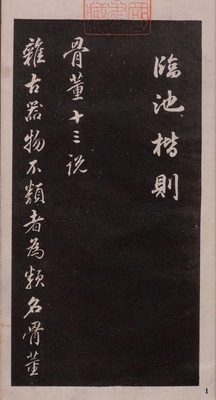 臨池楷則
骨董十三说
雜古器物不類者為類名骨董
1